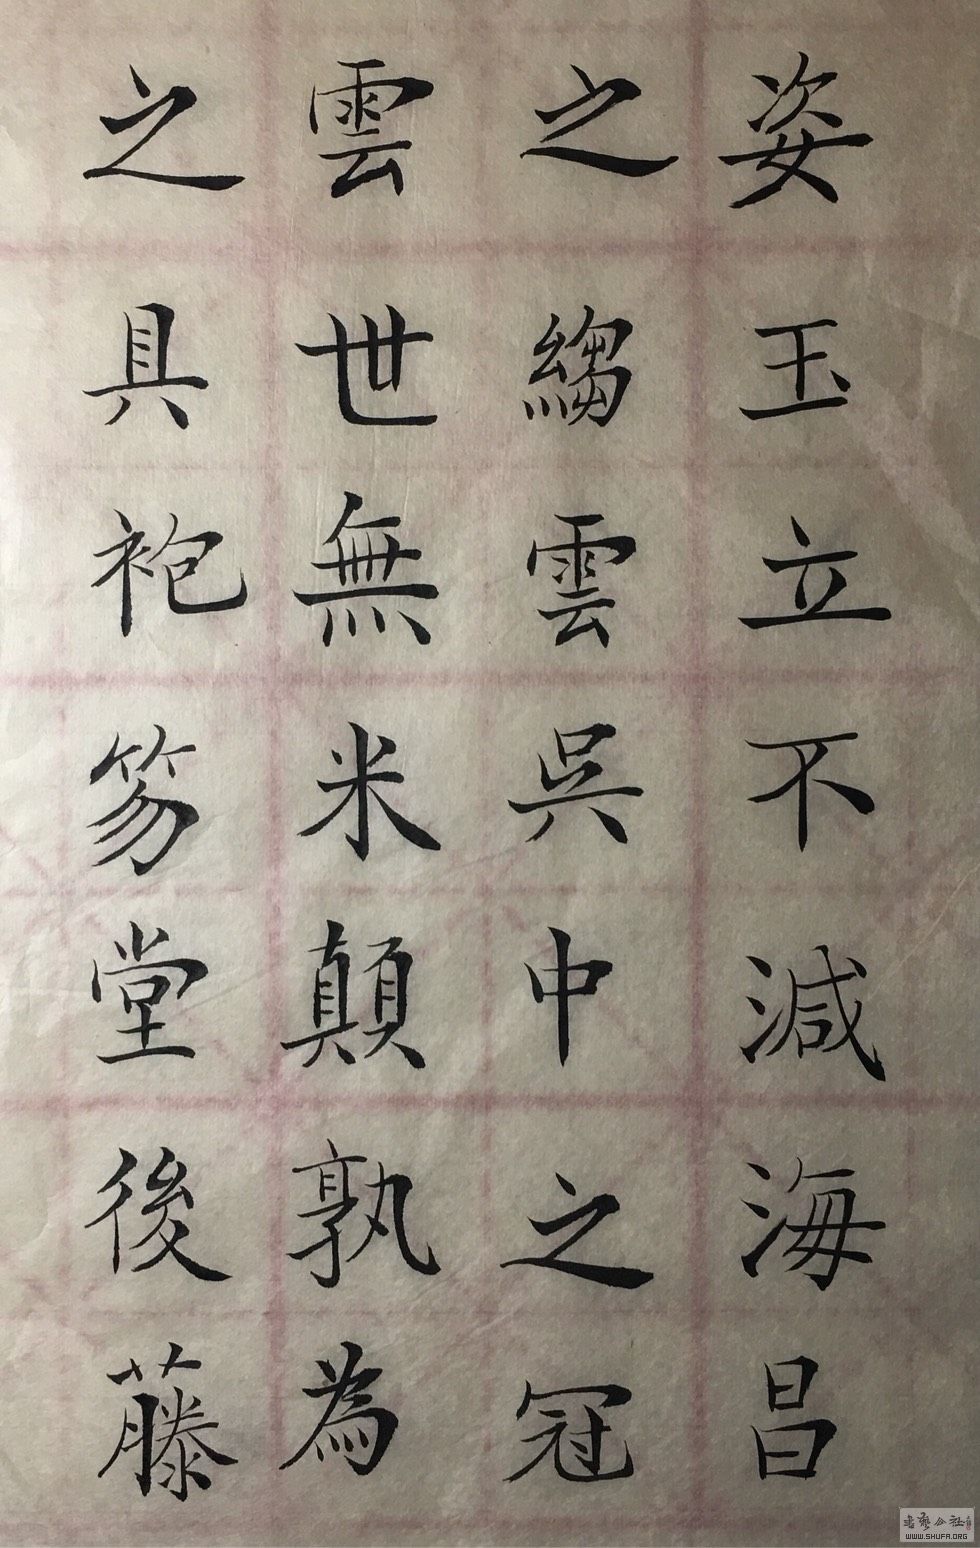 姿玉立不減海昌
之縐雲吳中之冠
雲世無米顛孰為
之具袍笏堂後藤
WWW.SHUFA.ORG